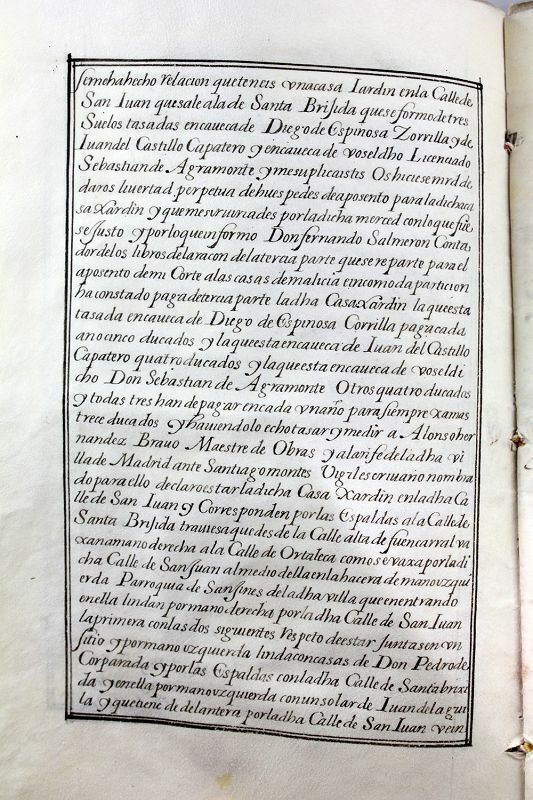 semehahecho relacion queteneis vnacasa Iardin enla Callede
San Iuan quesale alade Santa Brisida quese formo de tres
Suelos tasadas encaueca de Diego de Espinosa Zorrilla y de
Iuan del Castillo Capatero y encaueca de vos eldho Licenciado
Sebastian de Agramonte y mesuplicaistes Os hiciese mrd de
daros liuertad perpetua dehuespedes deaposento para ladichaca
sa xardin y que mesruiriades por ladicha merced conlo que fue
se Justo y por lo que informo Don fernando Salmeron Conta
dor delos libros dela racon dela tercia parte quese reparte para el
aposento de mi Corte alas casas de malicia e incomoda particion
ha constado paga de tercia parte ladha Casa xardin la que esta
tasada encaueca de Diego de Espinosa Corrilla paga cada
ano cinco ducados y laqueesta encaueca de Iuan del Castillo
Capatero quatro ducados y laqueesta encaueca de vos eldi
cho Don Sebastian de Agramonte Otros quatro ducados
y todas tres han de pagar encada vn año para siempre xamas
trece ducados y hauiendolo echo tasar y medir a Alonso her
nandez Brauo Maestre de Obras y alarife de ladha vi
lla de Madrid ante Santiago montes Vigil escriuano nombra
do para ello declaro estar ladicha Casa xardin enladha Ca
lle de San Iuan y Corresponden por las Espaldas ala Calle de
Santa Brisida trauiesa que des de la Calle alta de fuencarral va
xan a mano derecha ala Calle de Ortaleca como se vaxa por la di
cha Calle de San Juan al medio della enla hacera de mano yzqui
erda Parroquia de San Jines de ladha villa que en entrando
en ella lindan por mano derecha por ladha Calle de San Iuan
la primera con las dos siguientes Respeto de estar juntas en vn
sitio y por mano yzquierda linda con casas de Don Pedro de
Corparada y por las Espaldas con ladha Calle de Santa brixi
da y en ella por mano yzquierda con un solar de Iuan del agui
la y que tiene de delantera por ladha Calle de San Iuan vein